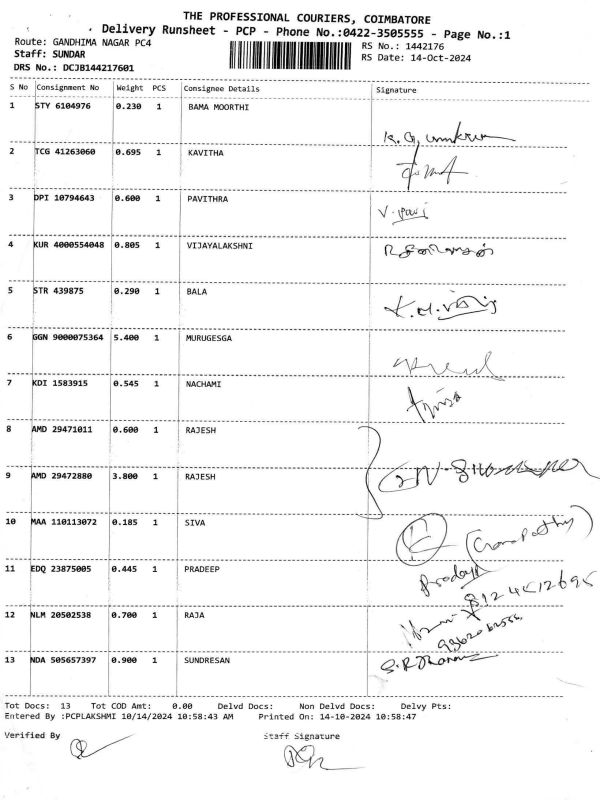 THE PROFESSIONAL COURIERS, COIMBATORE
Delivery Runsheet - PCP - Phone No.:0422-3505555 - Page No.:1
Route: GANDHIMA NAGAR PC4
RS No.: 1442176
Staff: SUNDAR
RS Date: 14-Oct-2024
DRS No.: DCJB144217601
S No Consignment No Weight PCS Consignee Details Signature
1 STY 6104976 0.230 1 BAMA MOORTHI
2 TCG 41263060 0.695 1 KAVITHA
3 DPI 10794643 0.600 1 PAVITHRA
V. pavi
4 KUR 4000554048 0.805 1 VIJAYALAKSHNI
5 STR 439875 0.290 1 BALA
6 GGN 9000075364 5.400 1 MURUGESGA
7 KDI 1583915 0.545 1 NACHAMI
8 AMD 29471011 0.600 1 RAJESH
9 AMD 29472880 3.800 1 RAJESH
10 MAA 110113072 0.185 1 SIVA
(Ganapathy)
11 EDQ 23875005 0.445 1 PRADEEP
12 NLM 20502538 0.700 1 RAJA
13 NDA 505657397 0.900 1 SUNDRESAN
Tot Docs: 13 Tot COD Amt: 0.00 Delvd Docs: Non Delvd Docs: Delvy Pts:
Entered By :PCPLAKSHMI 10/14/2024 10:58:43 AM Printed On: 14-10-2024 10:58:47
Verified By Staff Signature